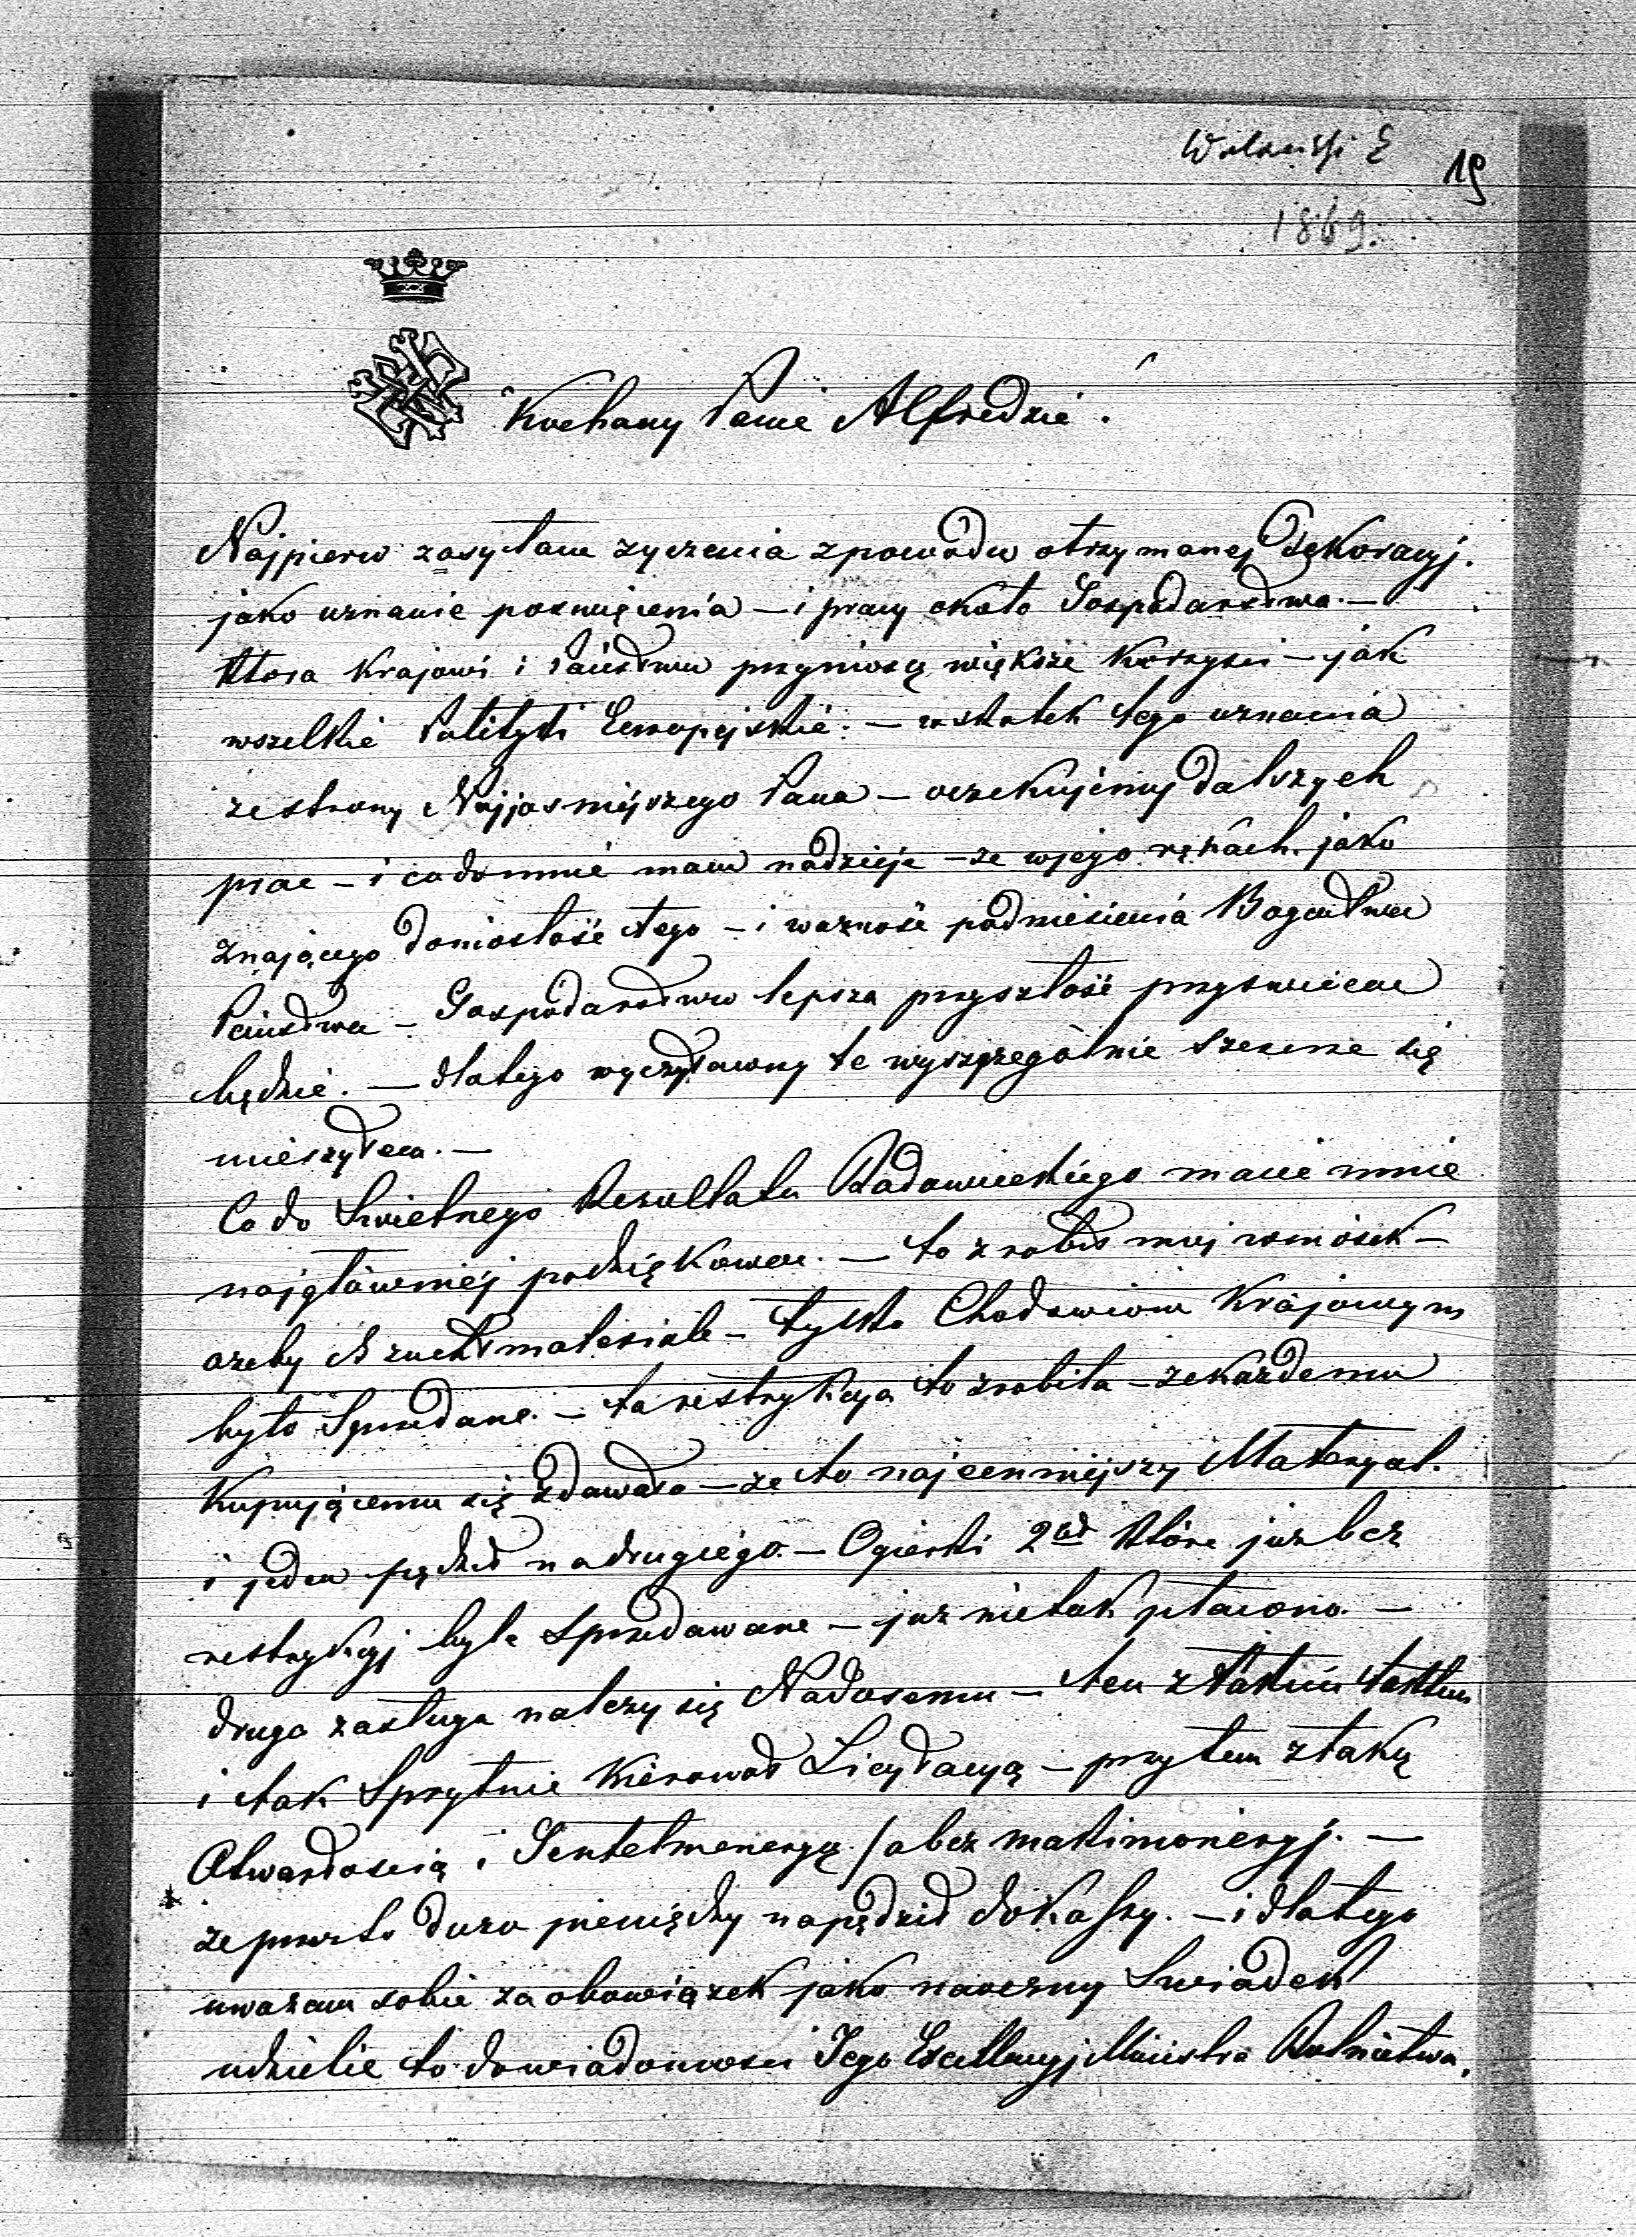 Wolański E
19
1869.
Kochany Panie Alfredzie!
Najpierw zasyłam zyczenia zpowodu otrzymanej Dekoracyj.
jako uznanie poswięcenia – i pracy około Gospodarstwa. –
Ktora Krajowi i Państwu przyniosą większe Korzysci – jak
wszelkie Polityki Europejskie. – wskutek tego uznania
zestrony Najjasniejszego Pana – oczekujemy Dalszych
prac – i codomnie mam nadzieje – ze wjego rękach. jako
znającego Doniosłość tego – i waznosć podniesienia Bogactwa
Państwa – Gospodarstwu lepsza przyszłość przyswiecac
będzie. – dlatego wyczytawszy te wyszczególnie szczerze się
cieszyłem. –
Co do Swietnego Resultatu Radowieckiego macie mnie
najgłówniej podziękowac. – to zrobił moj wniosek –
azeby Zuchtmateriale – tylko Chodowcom Krajowym
było Sprzedane. – ta restrykcya to zrobiła – zekazdemu
Kupującemu się zdawało – ze to najcenniejszy Materyał.
i jeden pędził nadrugiego. – Ogierki 2let Które juz bez
restrykcyj były Sprzedawane – juz nietak płacono. –
druga zasługa nalezy się Nadosemu – ten ztakim taktem
i tak Sprytnie Kierował Licytacyą – przytem ztaką
Otwartoscią i Gentelmeneryą / a bez makimoneryj. –
ze przezto duzo pieniędzy napędził do Kassy. – i dlatego
uwazam sobie za obowiązek jako naoczny Swiadek
udzielic to dowiadomosci Jego Excellencyj Ministra Rolnictwa.